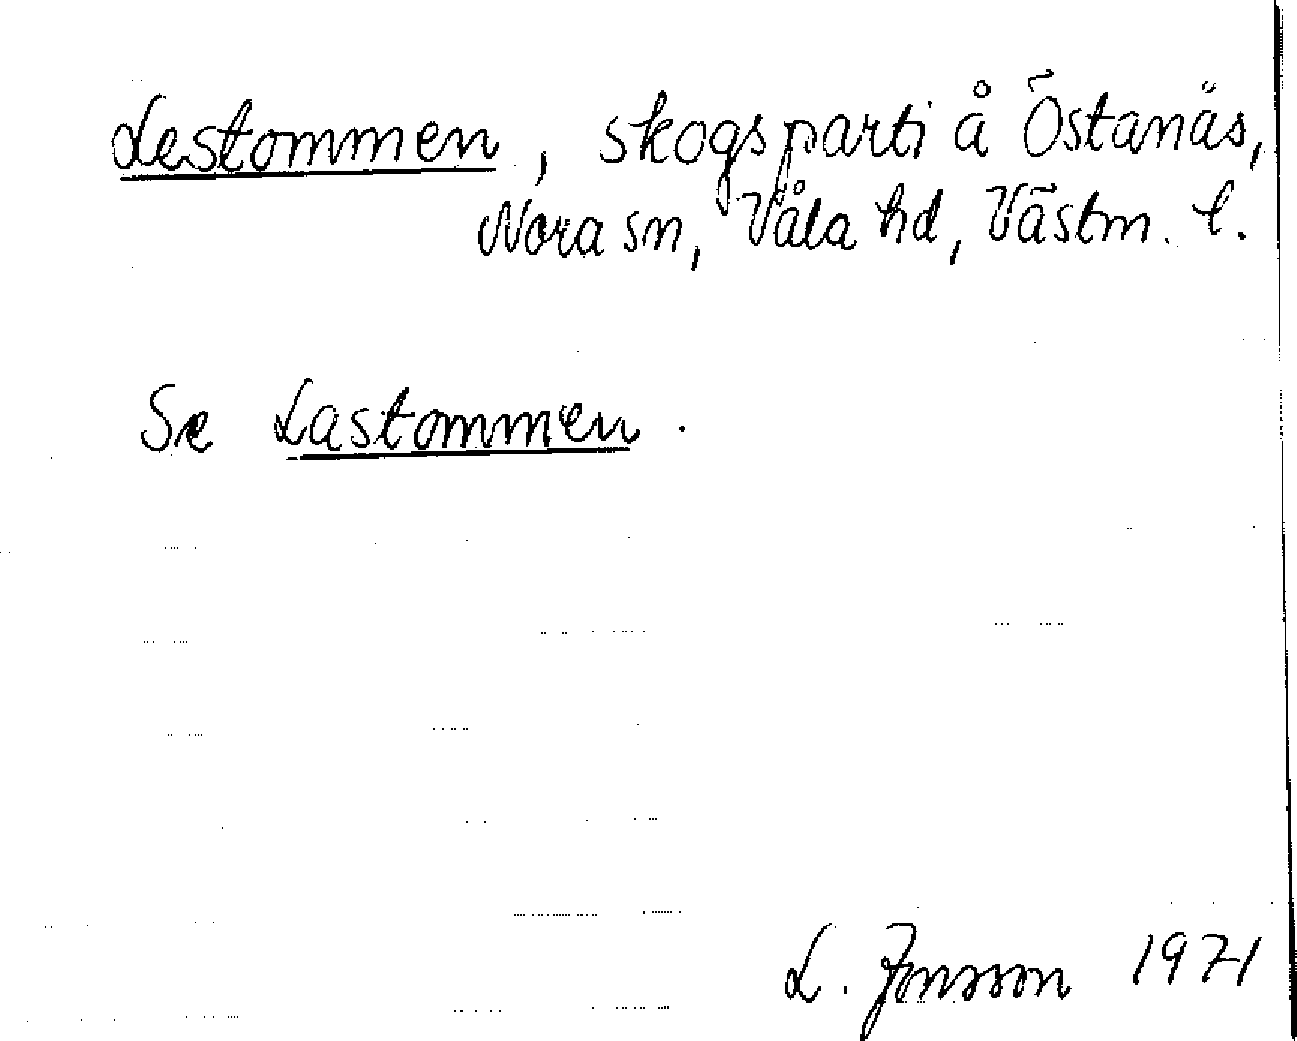 Lestommen, skogsparti å Östanäs,
Nora sn, Våla hd, Västm. l.
Se Lastommen.
L. Jonsson 1971